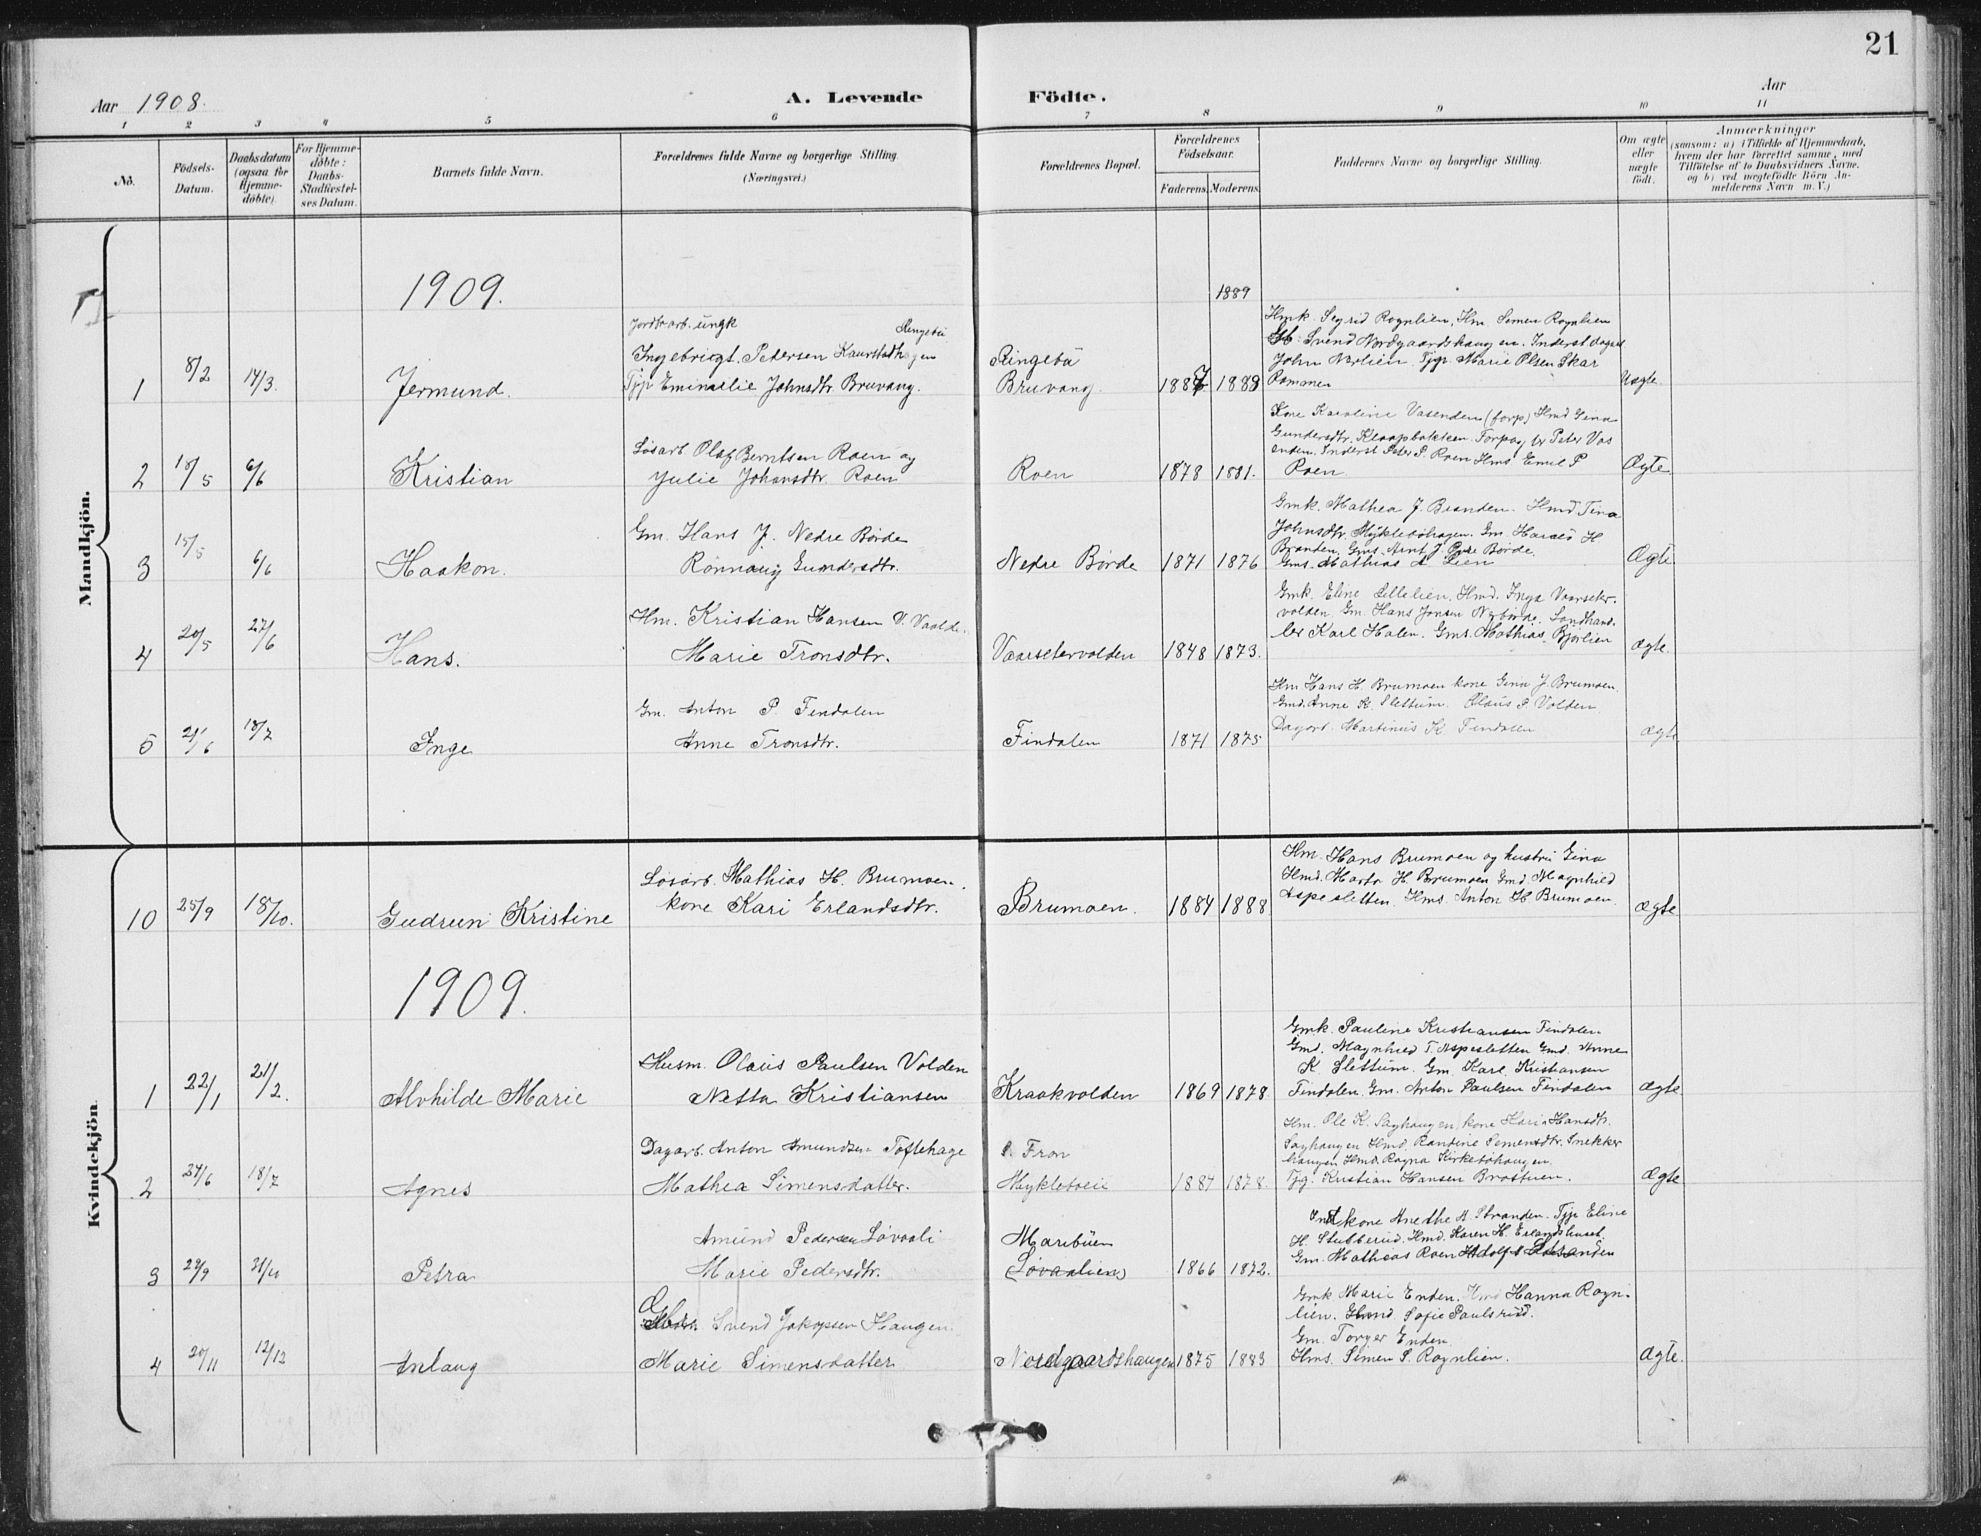 21
Aar 1908.
A. Levende Födte.
Aar
1 2 3 4 5 6 7 8 9 10 11
No.
Födsels-Datum.
Daabsdatum (ogsaa for Hjemme-döbte).
For Hjemme-döbte: Daabs-Stadfæstel-ses Datum.
Barnets fulde Navn.
Forældrenes fulde Navne og borgerlige Stilling (Næringsvei.)
Forældrenes Bopæl.
Forældrenes Födselsaar.
Faderens. Moderens.
Faddernes Navne og borgerlige Stilling.
Om ægte eller uægte födt.
Anmærkninger
(saasom: a) i Tilfælde af Hjemmedaab, hvem der har forrettet samme, med Tilföielse af to Daabsvidners Navne. og b) ved uægtefödte Börn An-melderens Navn m. V.)
Mandkjön.
1909.
1889
Jordbr.arb. ungk Ringebu
Ingebrigt Pedersen Kaurstadhagen
Tjp Eminelie Johnsdtr. Bruvang.
1 8/2 14/3. Jermund.
Ringebu
Bruvang. 1887 1889
Hmk. Sigrid Rognlien, Hm. Simen Rognlien
Svend Nordgaardshaugen. Inderst dagarb
John Nerlien. Tjp. Marie Olsen Skar
Rammen
Uægte
2 18/5 6/6 Kristian
Løsarb Olaf Berntsen Roen og
Julie Johansdtr. Roen
Roen 1878 1881.
Kone Karoline Vasenden (forp) Hmd Gina
Gundersdtr. Kleppbakken. Forpag br Peter Vas
enden. Inderst Peter P. Roen Hms Emil P
Roen.
Ægte.
3 15/5 6/6 Haakon.
Gm. Hans J. Nedre Børde
Rønnaug Gundersdtr.
Nedre Børde 1871 1876
Gmk. Mathea J. Branden. Hmd Tina
Johnsdtr. Myklebøhagen. Gm. Hans H
Branden. Gms. Arnt J. Øvre Børde
Gms. Mathias A Lien
Ægte
4 20/5 27/6 Hans.
Hm. Kristian Hansen V. Volde.
Marie Tronsdtr.
Vaarsetervolden 1848 1873.
Gmk. Eline Lillelien. Hmd. Inga Vaarseter-
volden. Gm. Hans Jonsen Nybørde. Landhand-
ler Karl Halen. Gms. Mathias Bjørlien
Ægte.
5 21/6 18/7 Inge
Gm. Anton P. Findalen
Anne Tronsdtr.
Findalen 1871 1875
Hm Hans H. Brumoen kone Gina J. Brumoen.
Gmd. Anne K Slettum. Olaus P Volden
Dagarb. Martinus K Findalen
ægte
Kvindekjön.
10 25/9 18/10. Gudrun Kristine
Løsarb. Mathias H. Brumoen.
kone Kari Erlandsdtr.
Brumoen. 1884 1888
Hm. Hans Brumoen og hustru Gina
Hmd. Marta H. Brumoen Gmd. Magnhild
Aspesletten. Hms. Anton H Brumoen.
Ægte
1909.
1 22/1 21/2. Alvhilde Marie
Husm. Olaus Paulsen Volden
Netta Kristiansen
Kraakvolden 1869 1878
Gmk. Pauline Kristiansen Findalen
Gmd. Magnhild T. Aspesletten Gmd. Anne
K Slettum. Gm. Karl Kristiansen
Findalen. Gm. Anton Paulsen Findalen
Ægte
2 27/6 18/7 Agnes
Dagarb. Anton Amundsen Toftehage
Mathea Simensdatter.
Ø. Fron
Mykleboeie 1887 1878.
Hm. Ole K. Saghaugen, kone Kari Hansdtr.
Saghaugen Hmd Randine Simensdtr. Snekker
haugen Hmd. Ragna Kirkebøhaugen.
Tjg. Kristian Hansen Brostuen.
Ægte
3 29/9 31/10 Petra
Amund Pedersen Løvaali
Marie Pedersdtr.
Maribuen
(Løvaalien) 1866 1872.
kone Anethe A. Stranden. Tjp Eline
H. Stubberud. Hmd. Karen H. Erlandshuset
Gm. Mathias Roen Adolf Stranden
4 20/11 12/12 Aslaug
Svend Jakopsen Haugen
Marie Simensdatter
Nordgaardshaugen 1875 1883
Gmk Marie Enden. Hmd Hanna Rogn-
lien. Hmd Sofie Paulsrud.
Gm. Torger Enden
Hms. Simen S. Rognlien.
Ægte.